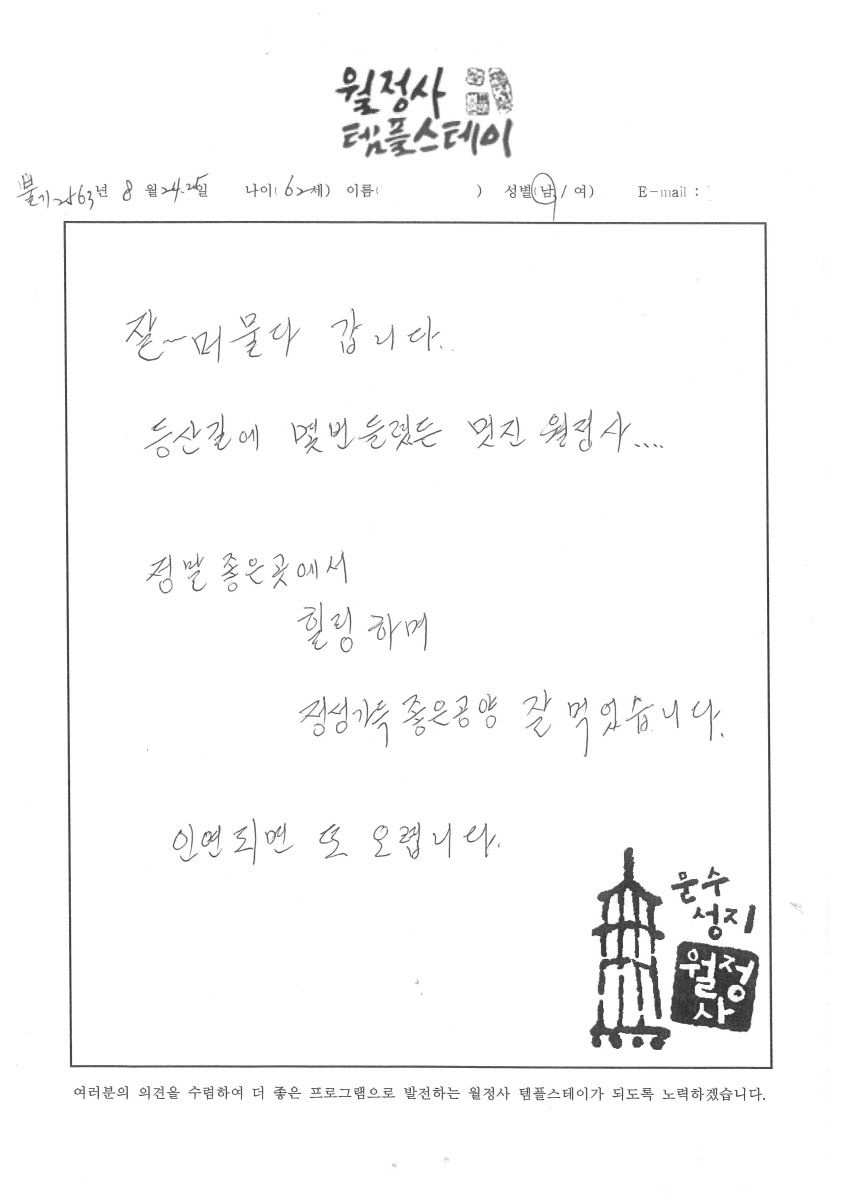 월정사
템플스테이
불기 2563년 8월 24.25일 나이(62세) 이름( ) 성별(남/여) E-mail :
잘~머물다 갑니다..
등산길에 몇번들렸든 멋진 월정사....
정말 좋은곳에서
힐링 하며
정성가득 좋은공양 잘 먹었습니다.
인연되면 또 오렵니다.
문수
성지
월정
사
여러분의 의견을 수렴하여 더 좋은 프로그램으로 발전하는 월정사 템플스테이가 되도록 노력하겠습니다.